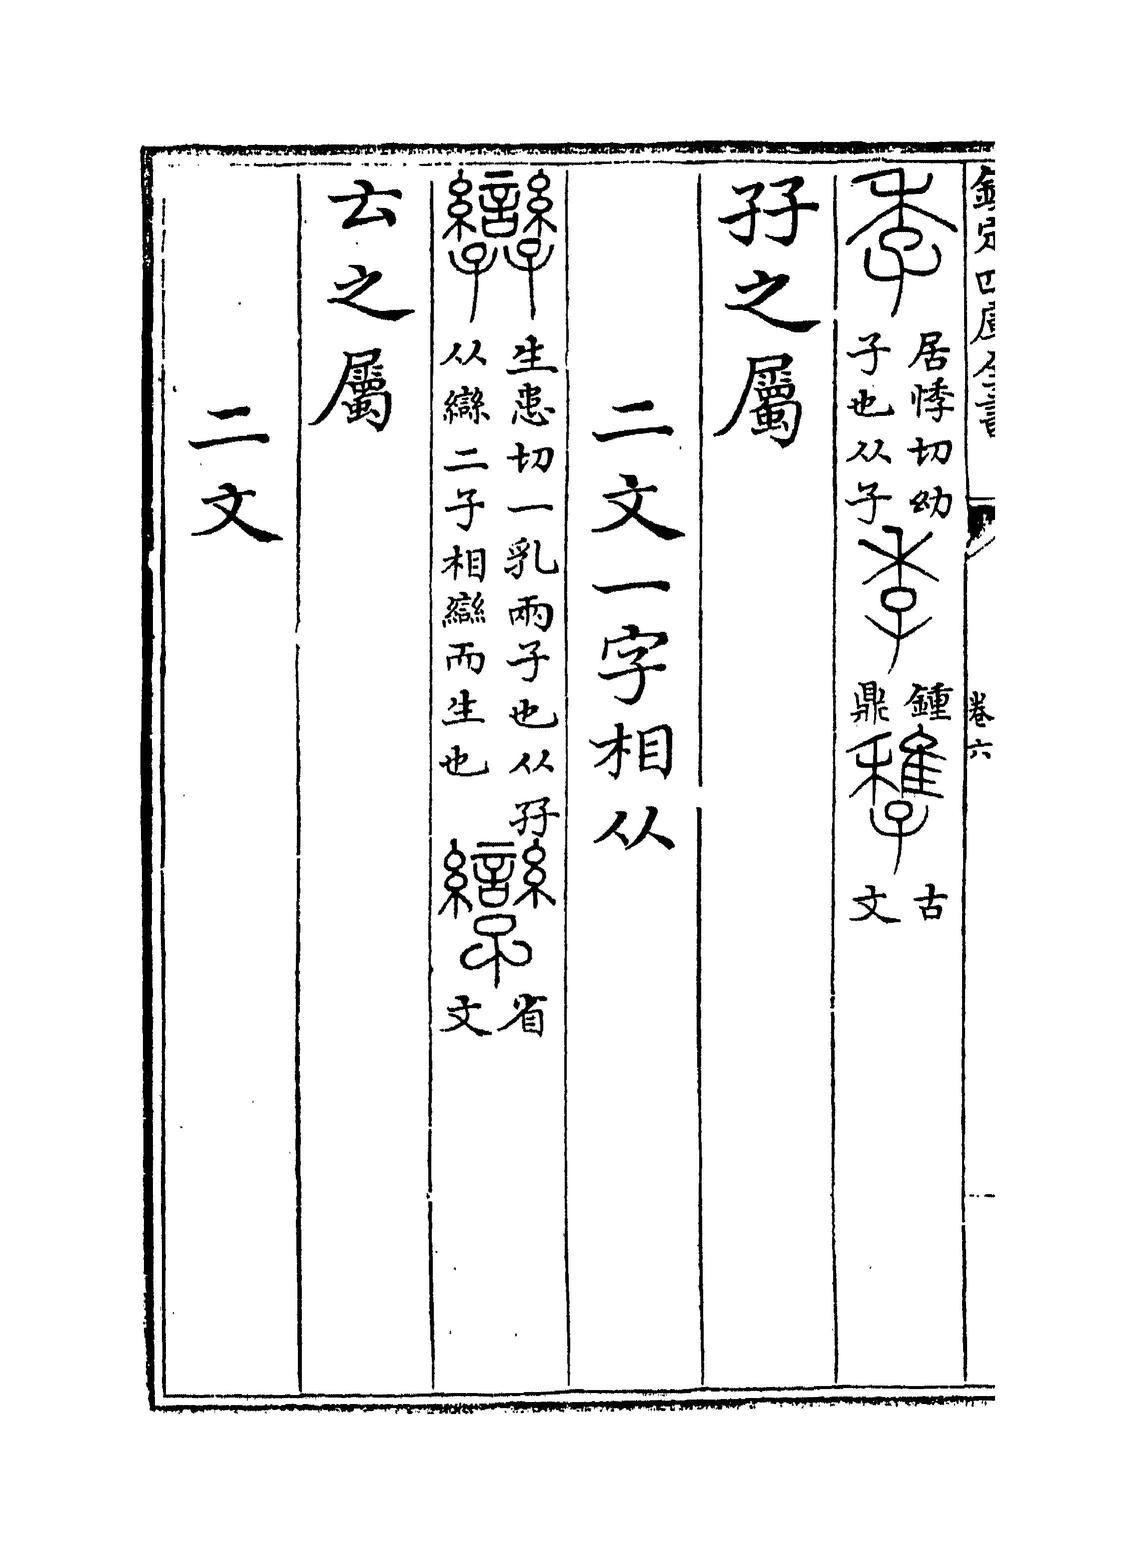 欽定四庫全書 卷六
季 居悸切幼子也从子 季 鍾鼎 古文
孖之屬
二文一字相从
孿 生患切一乳兩子也从孖从䜌二子相䜌而生也 孿 省文
𠫓之屬
二文